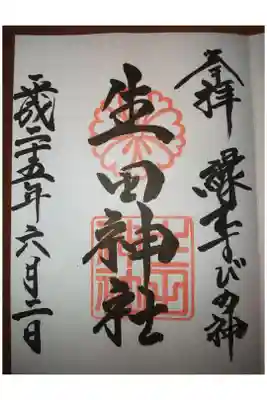 奉拝 縁むすびの神
生田神社
平成二十五年六月二日